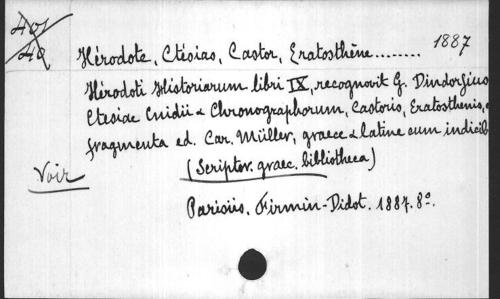 401
48
Hérodote, Ctésias, Castor, Eratosthène........ 1887
Hérodoti Historiarum libri IX, recognovit G. Dindorfius
Ctesiae Cnidii & Chronographorum, Castoris, Eratosthenis,
fragmenta ed. Car. Müller, graece & latine cum indicib
Voir (Scriptor. graec. bibliotheca)
Parisiis, Firmin-Didot. 1887. 8º.